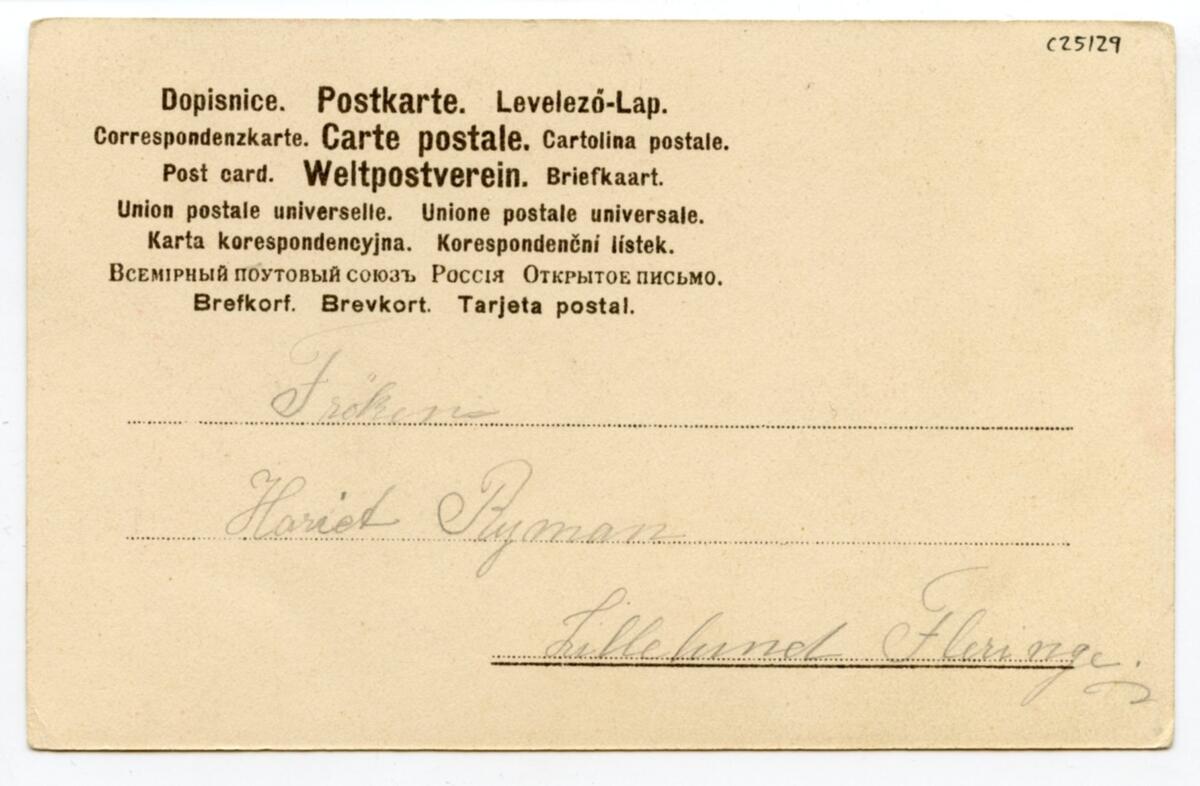 C25129
Dopisnice. Postkarte. Levelező-Lap.
Correspondenzkarte. Carte postale. Cartolina postale.
Post card. Weltpostverein. Briefkaart.
Union postale universelle. Unione postale universale.
Karta korespondencyjna. Korespondenční lístek.
Всемірный поутовый союзъ Россія Открытое письмо.
Brefkorf. Brevkort. Tarjeta postal.
Fröken
Hariet Ryman
Lillelund Fleringe.